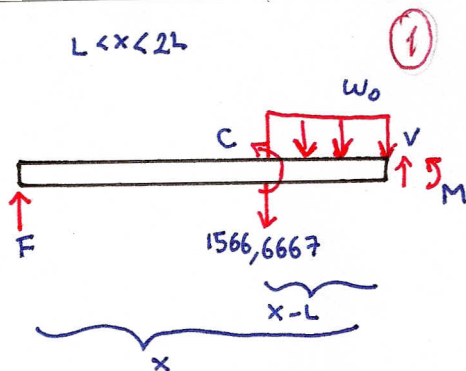 L<x<2L
1
w₀
C
V
M
F
1566,6667
x-L
x